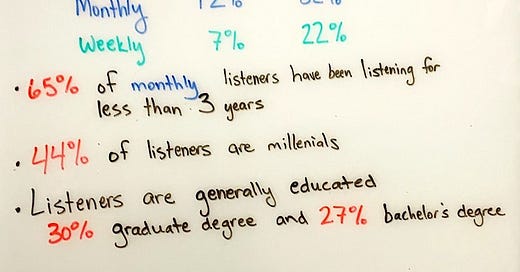 Monthly 12%
Weekly 7% 22%
• 65% of monthly listeners have been listening for
less than 3 years
• 44% of listeners are millenials
• Listeners are generally educated
30% graduate degree and 27% bachelor's degree